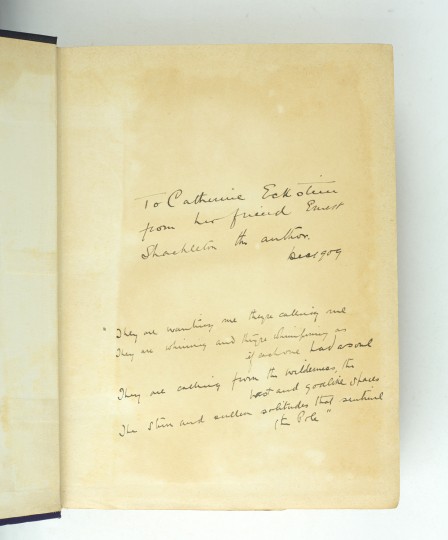 To Catherine Eckstein
from her friend Ernest
Shackleton the author.
Dec 1909
"They are wanting me they're calling me
They are whining and they're whimpering as
if each one had a soul
They are calling from the wilderness, the
vast and godlike spaces
The stern and sullen solitudes that sentinel
the Pole"